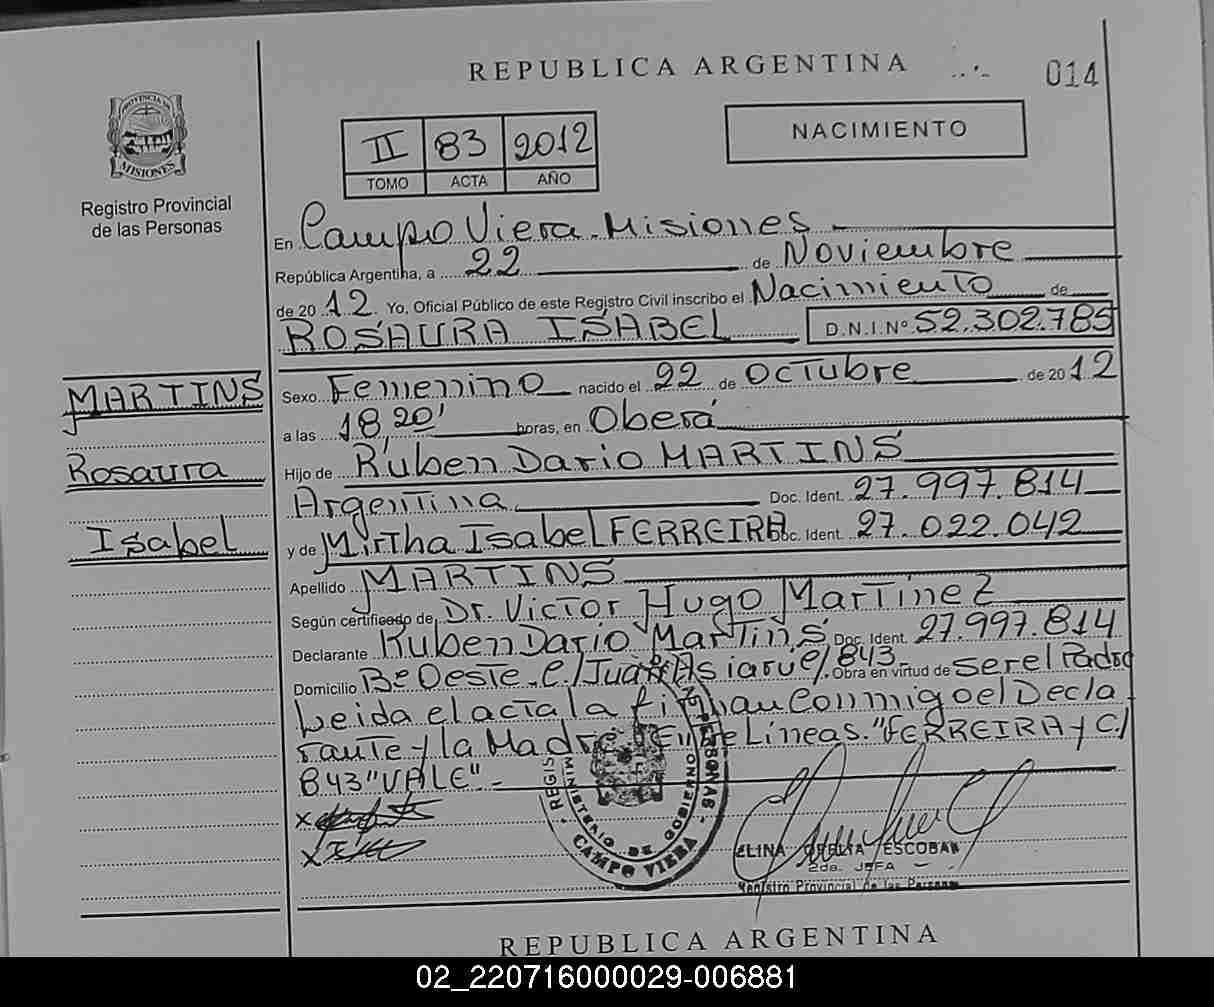 REPUBLICA ARGENTINA
014
PROVINCIA DE MISIONES
Registro Provincial
de las Personas
II 83 2012
TOMO ACTA AÑO
NACIMIENTO
En Campo Viera - Misiones -
República Argentina, a 22 de Noviembre
de 2012. Yo, Oficial Público de este Registro Civil inscribo el Nacimiento de
ROSAURA ISABEL D.N.I.Nº 52.302.785
MARTINS
Rosaura
Isabel
Sexo Femenino nacido el 22 de octubre de 2012
a las 18,20' horas, en Oberá
Hijo de Rúben Dario MARTINS
Argentina Doc. Ident. 27.997.814
y de Mirtha Isabel FERREIRA Doc. Ident. 27.022.042
Apellido MARTINS
Según certificado de Dr. Victor Hugo Martinez
Declarante Ruben Dario Martins Doc. Ident. 27.997.814
Domicilio Bº Oeste - C/Juan 843 - Obra en virtud de ser el Padre
Leida el acta la firman Conmigo el Decla
rante y la Madre Entre Lineas. "FERREIRA y C/
843 "VALE". -
REGIS PERSONAS
MINISTERIO DE GOBIERNO
CAMPO VIERA
ELINA OFELIA ESCOBAR
2da. JEFA
Registro Provincial de las Personas
REPUBLICA ARGENTINA
02_220716000029-006881